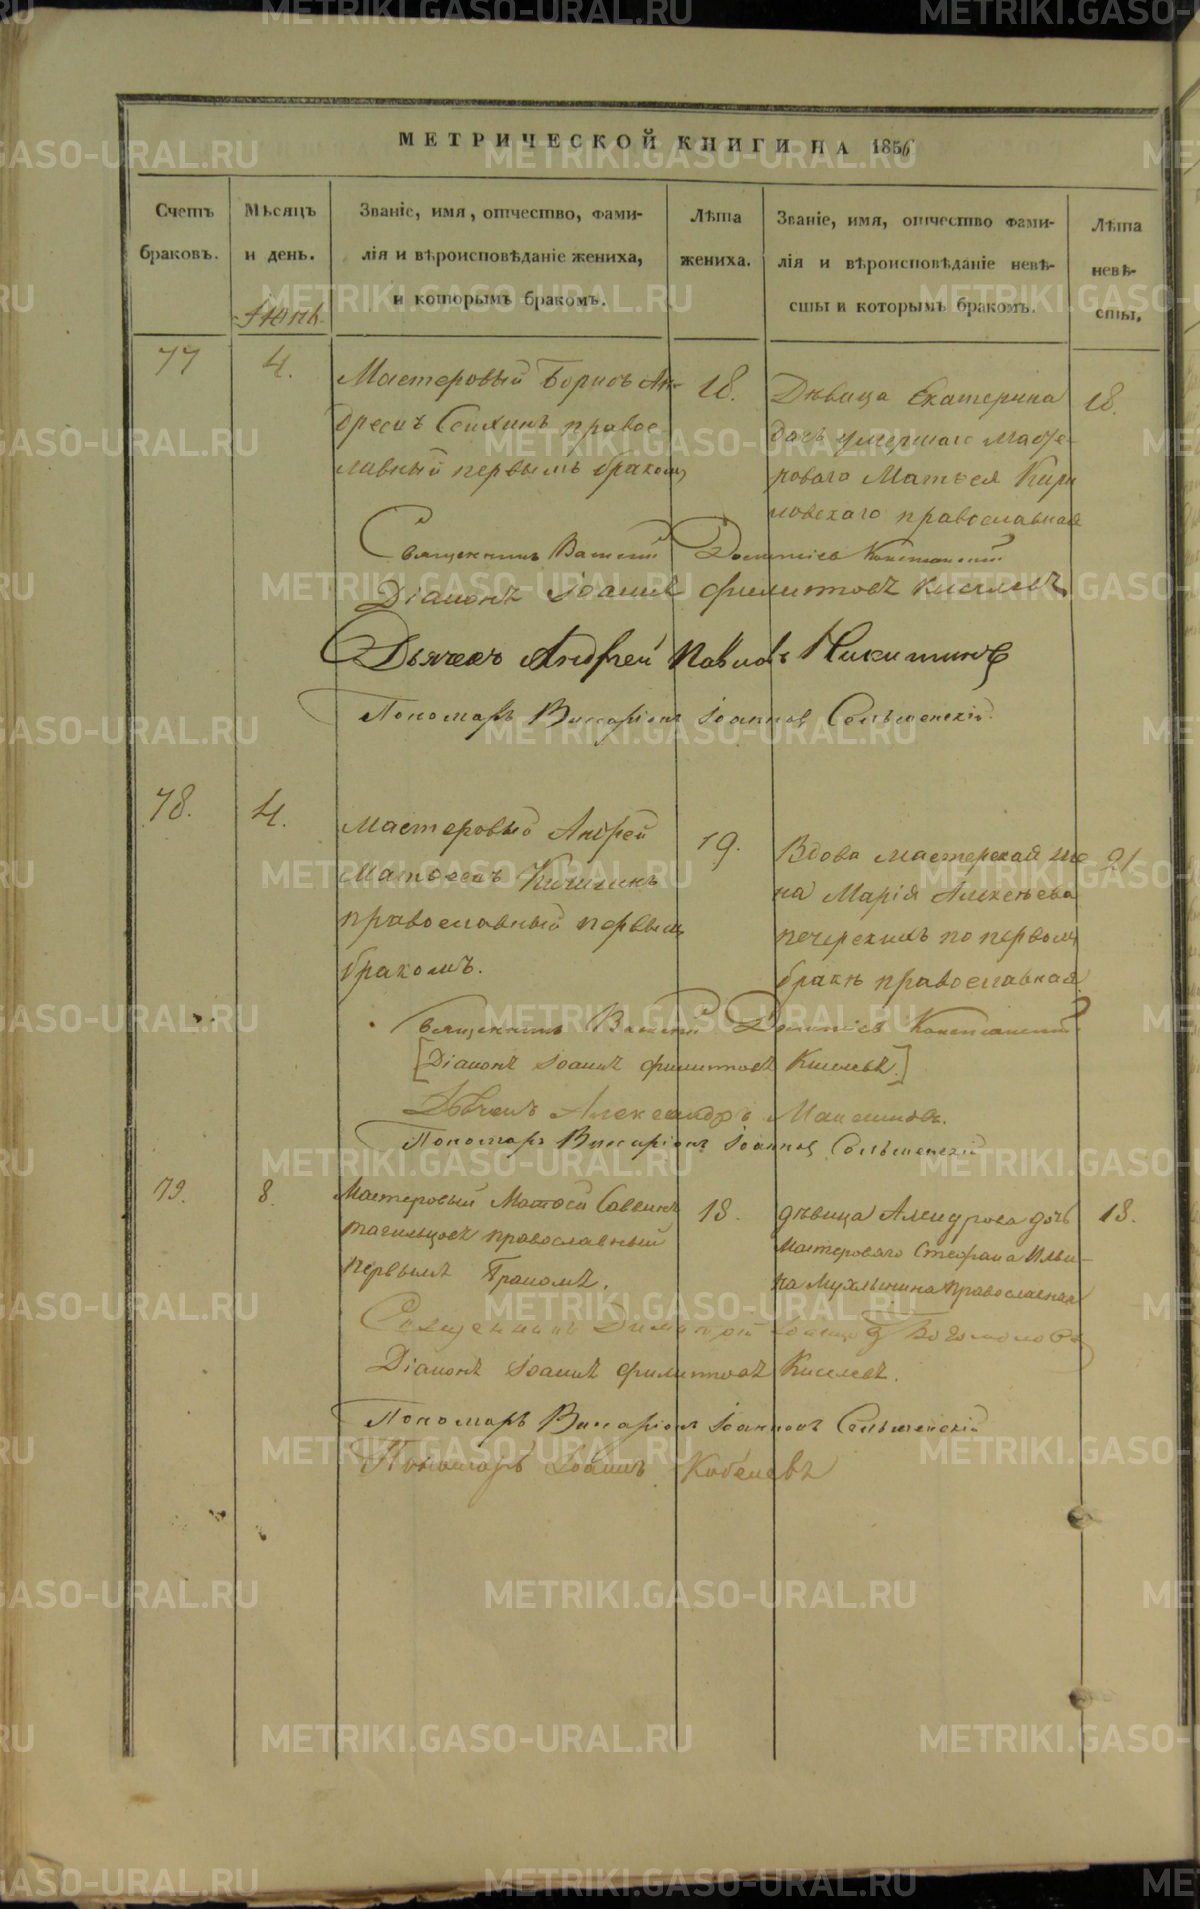 МЕТРИЧЕСКОЙ КНИГИ НА 1856
Счетъ браковъ.
Мѣсяцъ и день.
Званіе, имя, отчество, фамилія и вѣроисповѣданіе жениха, и которымъ бракомъ.
Лѣта жениха.
Званіе, имя, отчество фамилія и вѣроисповѣданіе невѣсты и которымъ бракомъ.
Лѣта невѣсты.
77
4.
Мастеровый Борисъ Ан-
дреевъ православный первымъ бракомъ
18.
Дѣвица Екатерина
дочь умершаго масте-
роваго Матвея
православная
18.
Священникъ Василій Констанскій
Діаконъ Іоаннъ Филиповъ Киселевъ
Дьячекъ Андрей Павловъ Никитинъ
Пономарь Виссаріонъ Іоанновъ
78.
4.
Мастеровый Андрей
Матвеевъ
православный первымъ
бракомъ.
19.
Вдова мастерская же
на Марія Алексѣева
по первомъ
бракѣ православная
21
Священникъ Василій
[Діаконъ Іоаннъ Филиповъ Киселевъ.]
Дьячекъ Александръ Максимовъ.
Пономарь Виссаріонъ Іоанновъ
79.
8.
Мастеровый Матвей Саввинъ
Тагильцовъ православный
первымъ бракомъ.
18.
дѣвица дочь
Мастероваго Стефана Ильи-
на Мухлынина православная
18.
Священникъ Димитрій Богомоловъ
Діаконъ Іоаннъ Филиповъ Киселевъ.
Пономарь Виссаріонъ Іоанновъ
Пономарь Іоаннъ Кобелевъ
METRIKI.GASO-URAL.RU